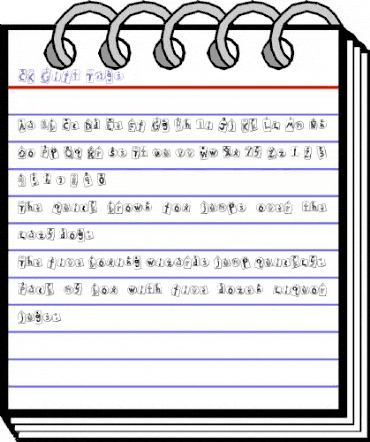 CK Gift Tags
Aa Bb Cc Dd Ee Ff Gg Hh Ii Jj Kk Ll Mm Nn
Oo Pp Qq Rr Ss Tt Uu Vv Ww Xx Yy Zz 1 2 3
4 5 6 7 8 9 0
The quick brown fox jumps over the
lazy dog.
The five boxing wizards jump quickly.
Pack my box with five dozen liquor
jugs.